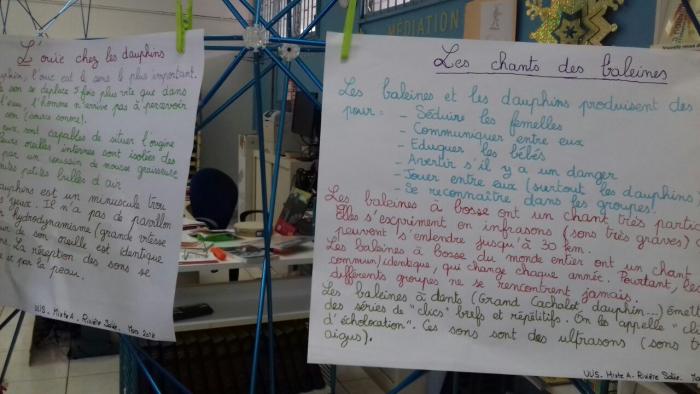 MÉDIATION
L'ouïe chez les dauphins
l'ouïe est le sens le plus important.
son se déplace 5 fois plus vite que dans
l'eau, l'homme n'arrive pas à percevoir
son (source sonore).
sont capables de situer l'origine
oreilles internes sont isolées des
par un coussin de mousse graisseuse
petites bulles d'air.
dauphins est un minuscule trou
yeux. Il n'a pas de pavillon
hydrodynamisme (grande vitesse
de son oreille est identique
La réception des sons se
par la peau.
UUS. Mixte A. Rivière Salée. Mars
Les chants des baleines
Les baleines et les dauphins produisent des
pour : - Séduire les femelles
- Communiquer entre eux
- Eduquer les bébés
- Avertir s'il y a un danger
- Jouer entre eux (surtout les dauphins)
- Se reconnaître dans les groupes.
Les baleines à bosse ont un chant très partic
Elles s'expriment en infrasons (sons très graves)
peuvent s'entendre jusqu'à 30 km.
Les baleines à bosse du monde entier ont un chant
commun/identique, qui change chaque année. Pourtant, les
différents groupes ne se rencontrent jamais.
Les baleines à dents (Grand Cachalot, dauphin...) émett
des séries de "clics" brefs et répétitifs. On les appelle "cli
d'écholocation". Ces sons sont des ultrasons (sons t
aigus).
UUS. Mixte A. Rivière Salée. Ma